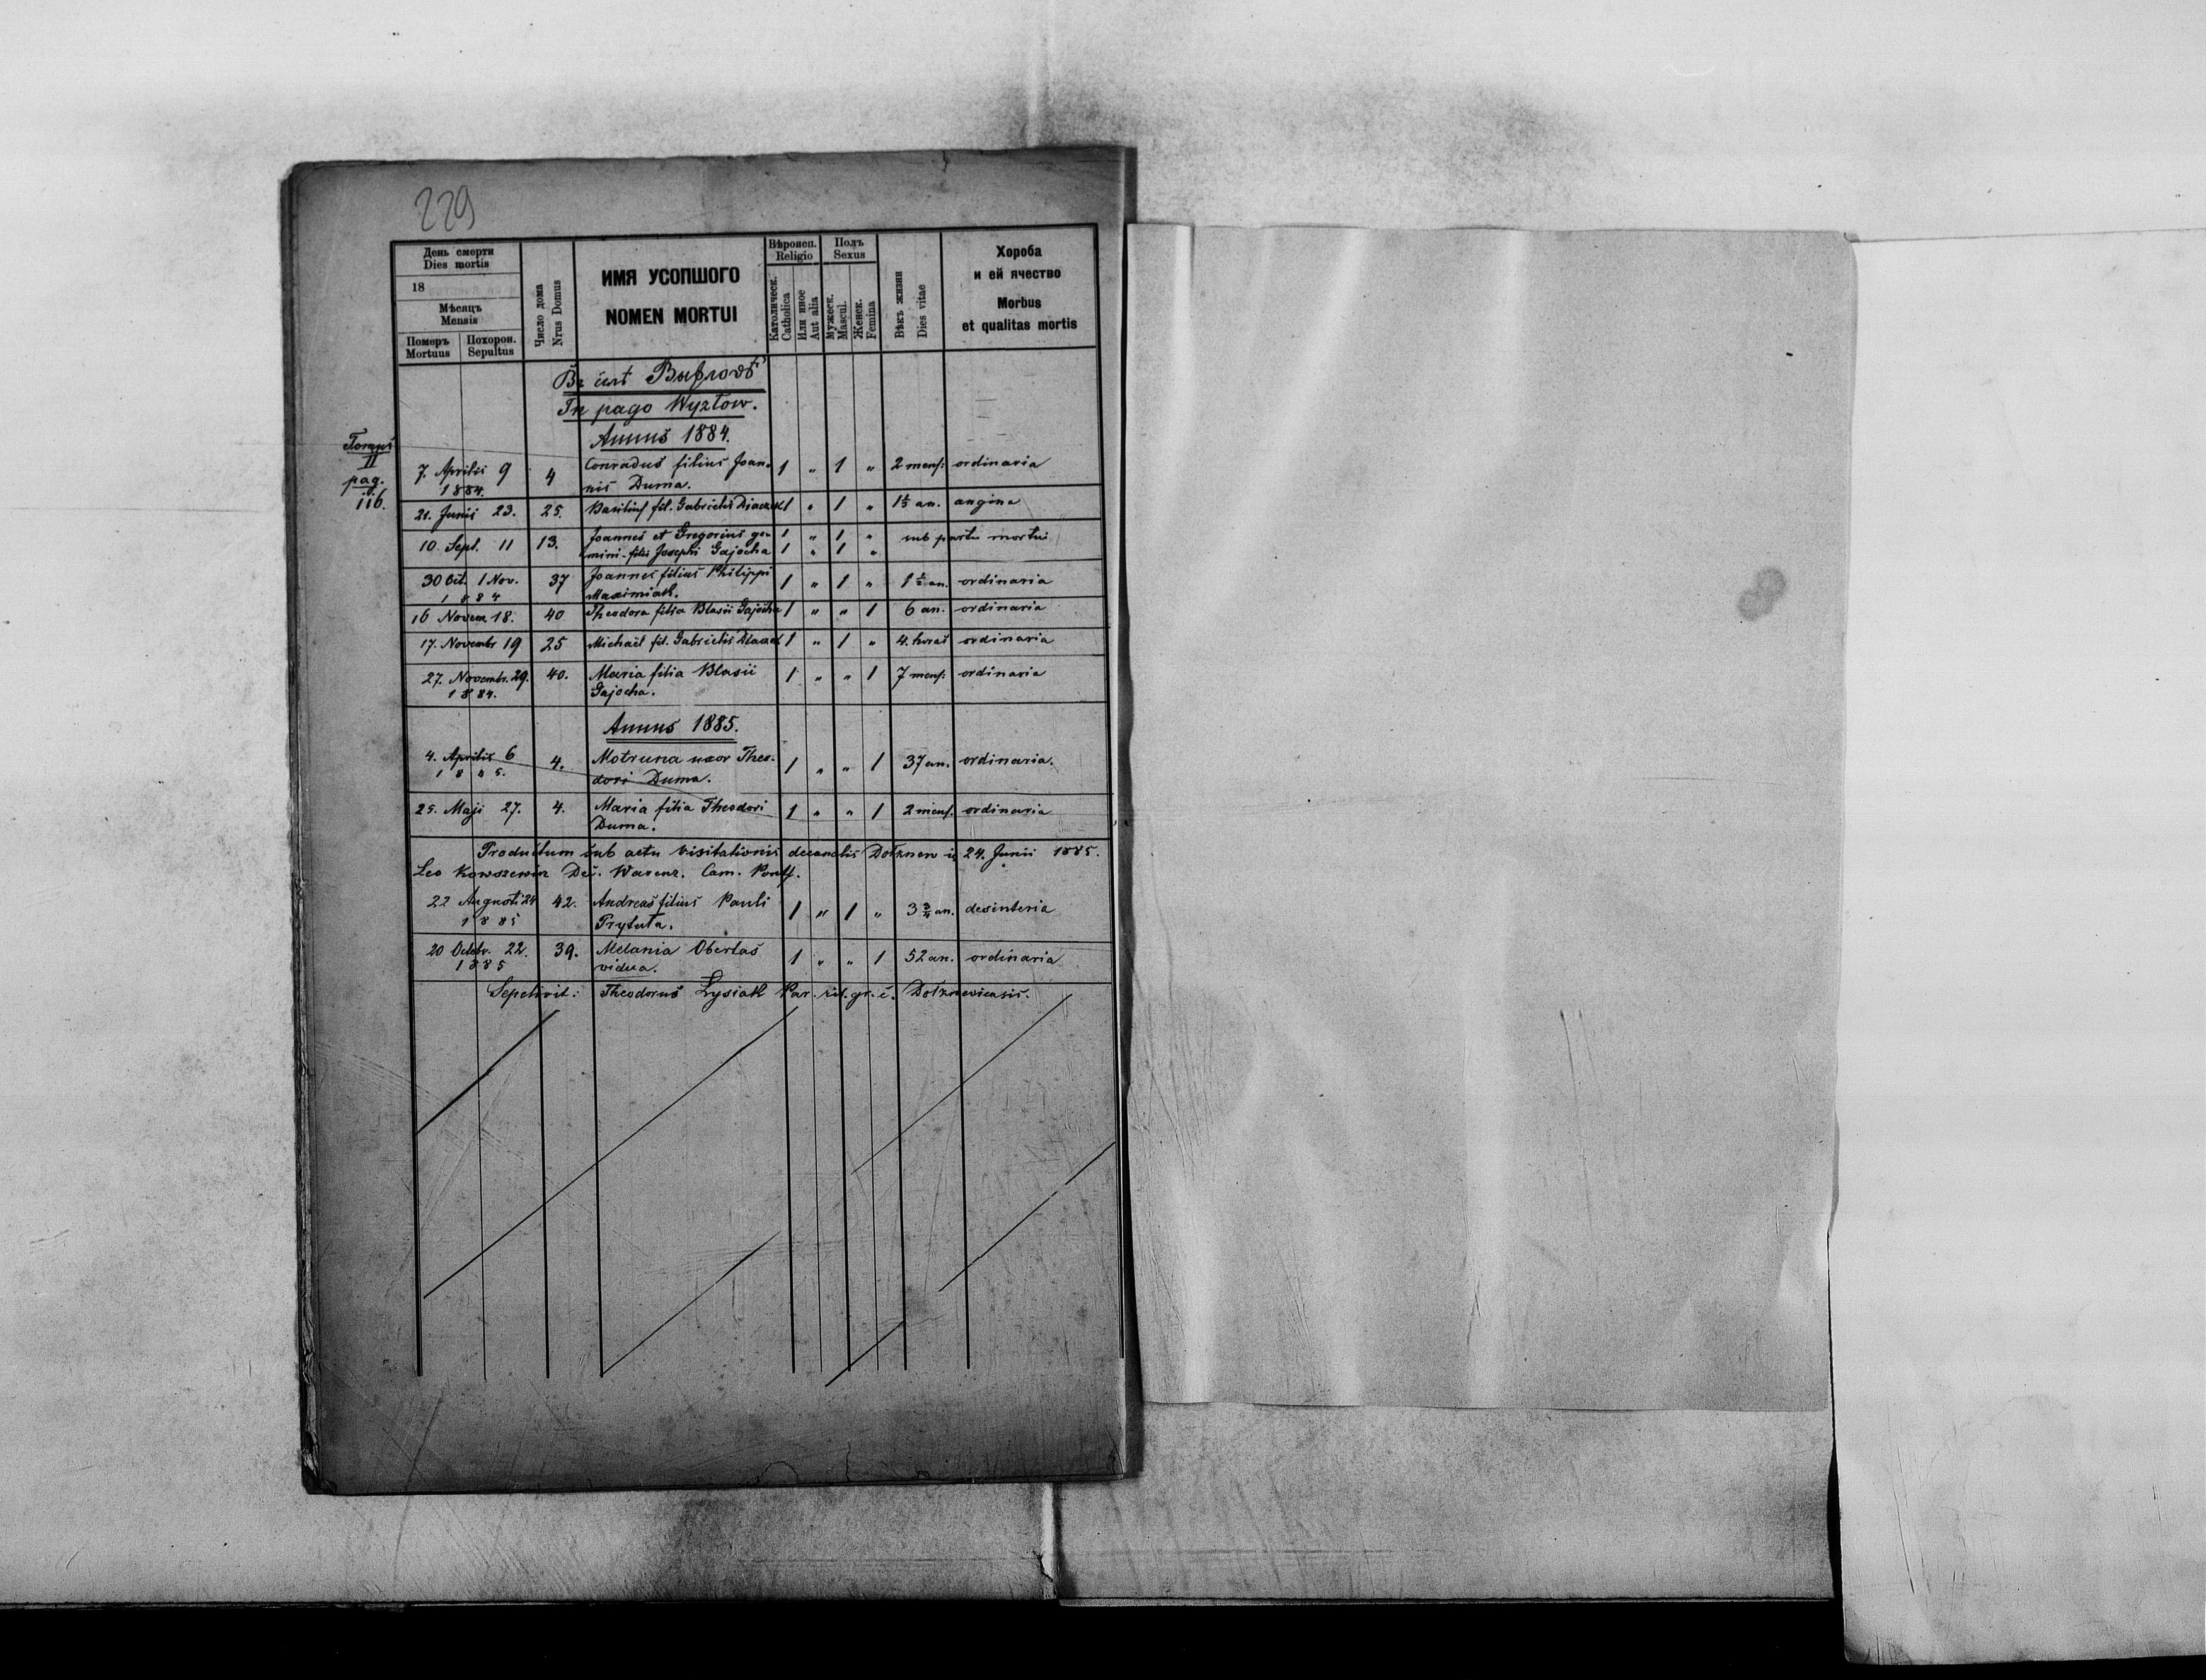 229
День смерти
Dies mortis
18
Мѣсяцъ
Mensis
Померъ Mortuus
Похорон. Sepultus
Число дома
Nrus Domus
ИМЯ УСОПШОГО
NOMEN MORTUI
Вѣроисп.
Religio
Католическ.
Catholica
Или иное
Aut alia
Полъ
Sexus
Мужеск.
Mascul.
Женск.
Femina
Вѣкъ жизни
Dies vitae
Хороба
и ей ячество
Morbus
et qualitas mortis
In pago Wyzłow.
Annus 1884.
Tomus
II
pag.
116.
7. Aprilis 9 4 Conradus filius Joan- 1 " 1 " 2 mens: ordinaria
1884. nis Duma.
21. Junii 23. 25. Basilius fil. Gabrielis Diaczek 1 " 1 " 1½ an. angina
10 Sept. 11 13. Joannes et Gregorius ge- 1 " 1 " sub partu mortui
mini filii Josephi Gajocha 1 " 1 "
30 Oct. 1 Nov. 37 Joannes filius Philippi 1 " 1 " 1½ an. ordinaria
1884 Maximiak.
16 Novem 18. 40 Theodora filia Blasii Gajocha 1 " " 1 6 an. ordinaria
17. Novembr 19 25 Michael fil. Gabrielis Diaczek 1 " 1 " 4. horas ordinaria
27. Novembr. 29. 40. Maria filia Blasii 1 " " 1 7 mens: ordinaria
1884. Gajocha.
Annus 1885.
4. Aprilis 6 4. Motruna uxor Theo- 1 " " 1 37 an. ordinaria.
1885. dori Duma.
25. Maji 27. 4. Maria filia Theodori 1 " " 1 2 mens. ordinaria
Duma.
Productum sub actu visitationis decanalis Dołznew 24. Junii 1885.
Leo Kowszewicz Dec. Warenz. Cam. Pontf.
22 Augusti 24 42. Andreas filius Pauli 1 " 1 " 3 ¾ an. desinteria
1885 Prytuła.
20 Octobr. 22. 39. Melania Obertas 1 " " 1 52 an. ordinaria
1885 vidua.
Sepelivit: Theodorus Łysiak Par. rit. gr. c. Dołzneviensis.